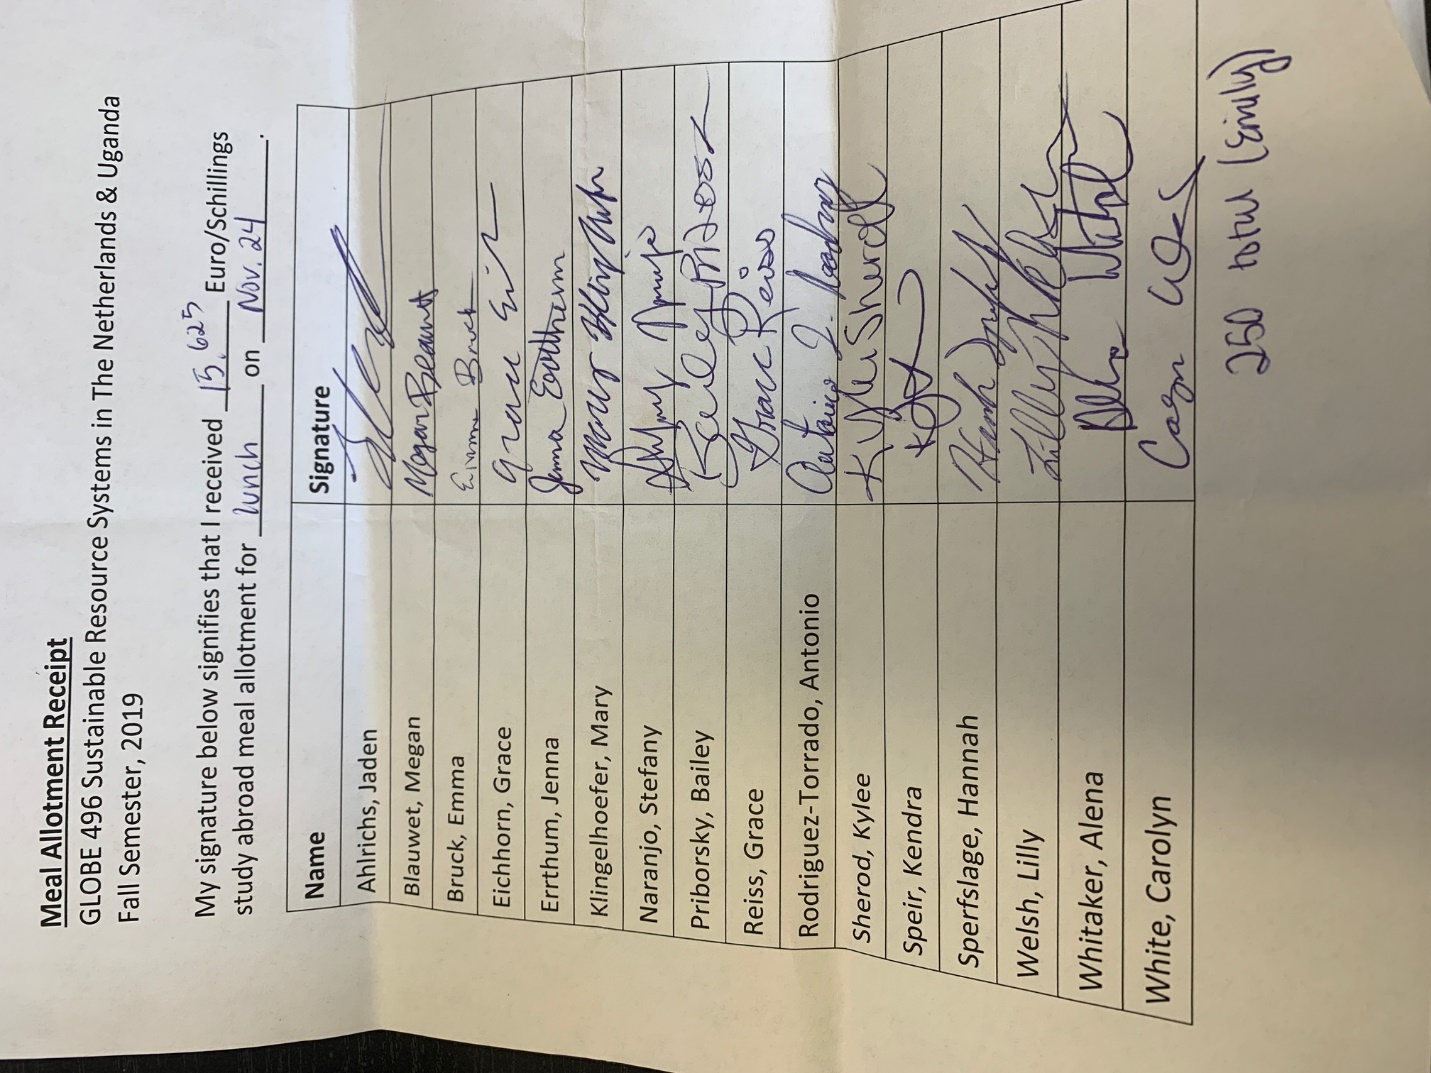 Meal Allotment Receipt
GLOBE 496 Sustainable Resource Systems in The Netherlands & Uganda
Fall Semester, 2019
My signature below signifies that I received 15,625 Euro/Schillings
study abroad meal allotment for lunch on Nov. 24.
Name Signature
Ahlrichs, Jaden
Blauwet, Megan Megan Blauwet
Bruck, Emma Emma Bruck
Eichhorn, Grace Grace
Errthum, Jenna Jenna Errthum
Klingelhoefer, Mary Mary
Naranjo, Stefany Naranjo
Priborsky, Bailey Bailey
Reiss, Grace Grace Reiss
Rodriguez-Torrado, Antonio Antonio J.
Sherod, Kylee Kylee Sherod
Speir, Kendra
Sperfslage, Hannah
Welsh, Lilly Lilly
Whitaker, Alena
White, Carolyn
250 total (Emily)